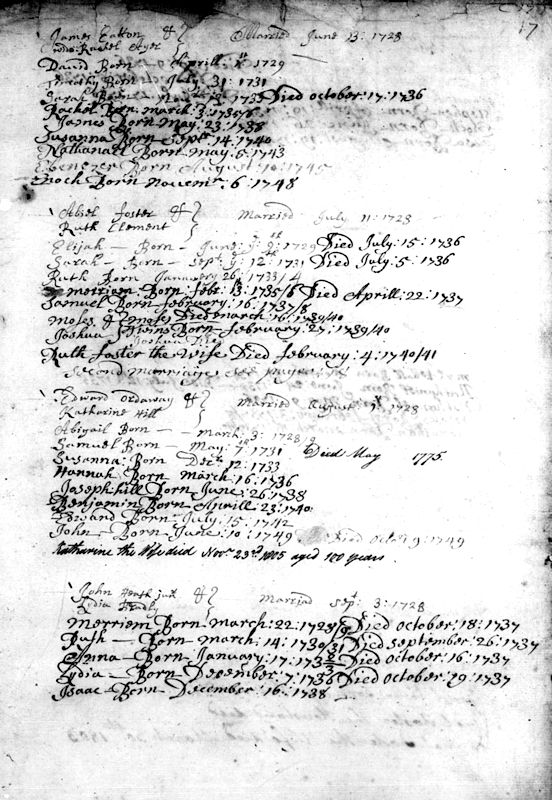 17
James Eatton &
Rachel Ayer } Married June 13: 1728
David Born Aprill 1729
Timothy Born July 31: 1731
Sarah Born 1733 Died october: 17: 1736
Rachel Born march: 3: 1735/6
James Born May: 23: 1738
Susanna Born Septr 14: 1740
Nathanael Born may: 5: 1743
Ebenezer Born August 10: 1745
Enoch Born novemr: 6: 1748
Abiel foster &
Ruth Clement } Married July 11: 1728
Elijah — Born — June: 1729 Died July: 15: 1736
Sarah — Born — Sept 12: 1731 Died July: 5: 1736
Ruth Born January 26: 1733/4
merriam Born febr: 13: 1735/6 Died Aprill: 22: 1737
Samuel Born february: 16: 1737/8
moses & moses Died march 1739/40
Joshua Twins Born february: 27: 1739/40
Joshua Died
Ruth foster the Wife Died february: 4: 1740/41
Second marriage see
Edward ordaway &
Katharine Hill } Married August: 1728
Abigail Born — march: 3: 1728/9
Samuel Born — May: 7: 1731 Died May 1775.
Susanna Born Decr: 12: 1733
Hannah Born march: 16: 1736
Joseph hill Born June: 26: 1738
Benjamin Born Aprill: 23: 1740
Edward Born July: 15: 1742
John — Born June: 10: 1749 Died octor 9: 1749
Katharine the Wife died Novr. 23d 1805 aged 100 years.
John Heath junr &
Lydia } Married Sept: 3: 1728
Merriem Born march: 22: 1728/9 Died october: 18: 1737
Ruth — Born march: 14: 1730/31 Died September: 26: 1737
Anna — Born January: 17: 173 Died october: 16: 1737
Lydia — Born December: 7: 1736 Died october: 29: 1737
Isaac — Born December: 16: 1738